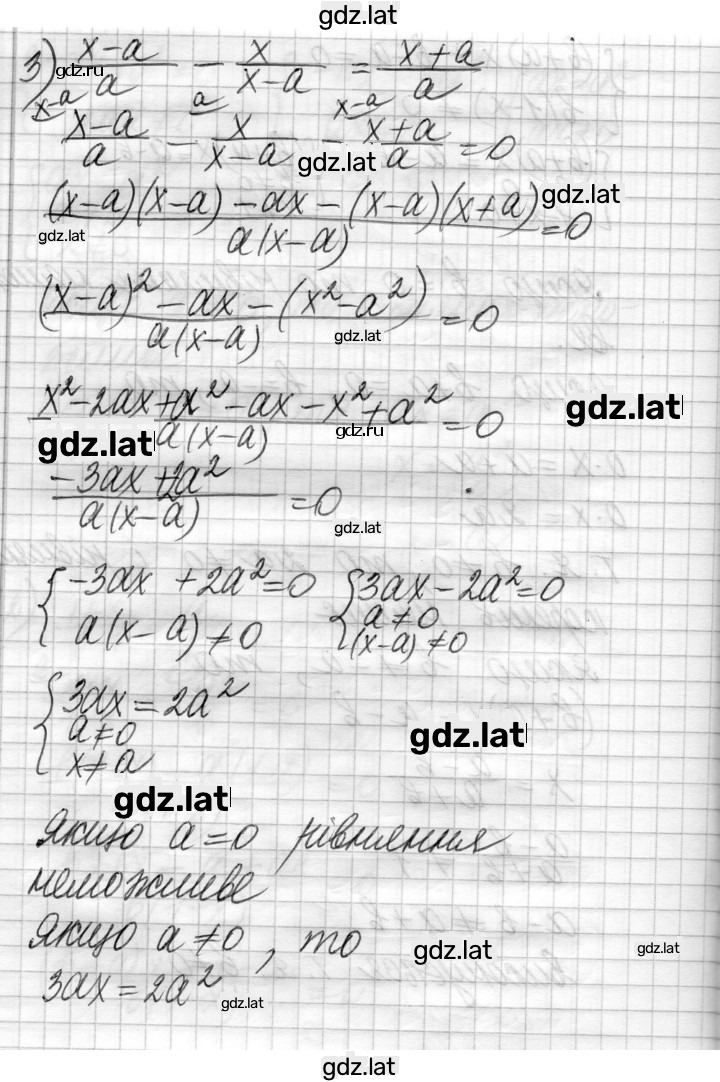 gdz.lat
3) (x-a)/a - x/(x-a) = (x+a)/a
gdz.ru
x-a a x-a
(x-a)/a - x/(x-a) - (x+a)/a = 0
gdz.lat
((x-a)(x-a) - ax - (x-a)(x+a))/(a(x-a)) = 0
gdz.lat
gdz.lat
((x-a)² - ax - (x²-a²))/(a(x-a)) = 0
gdz.lat
(x²-2ax+a²-ax-x²+a²)/(a(x-a)) = 0
gdz.lat
gdz.lat
gdz.ru
(-3ax+2a²)/(a(x-a)) = 0
gdz.lat
{ -3ax + 2a² = 0 { 3ax - 2a² = 0
a(x-a) ≠ 0 a ≠ 0
(x-a) ≠ 0
{ 3ax = 2a²
a ≠ 0
x ≠ a
gdz.lat
gdz.lat
Якщо a = 0 рівняння
неможливе
Якщо a ≠ 0, то
gdz.lat
gdz.lat
3ax = 2a²
gdz.lat
gdz.lat